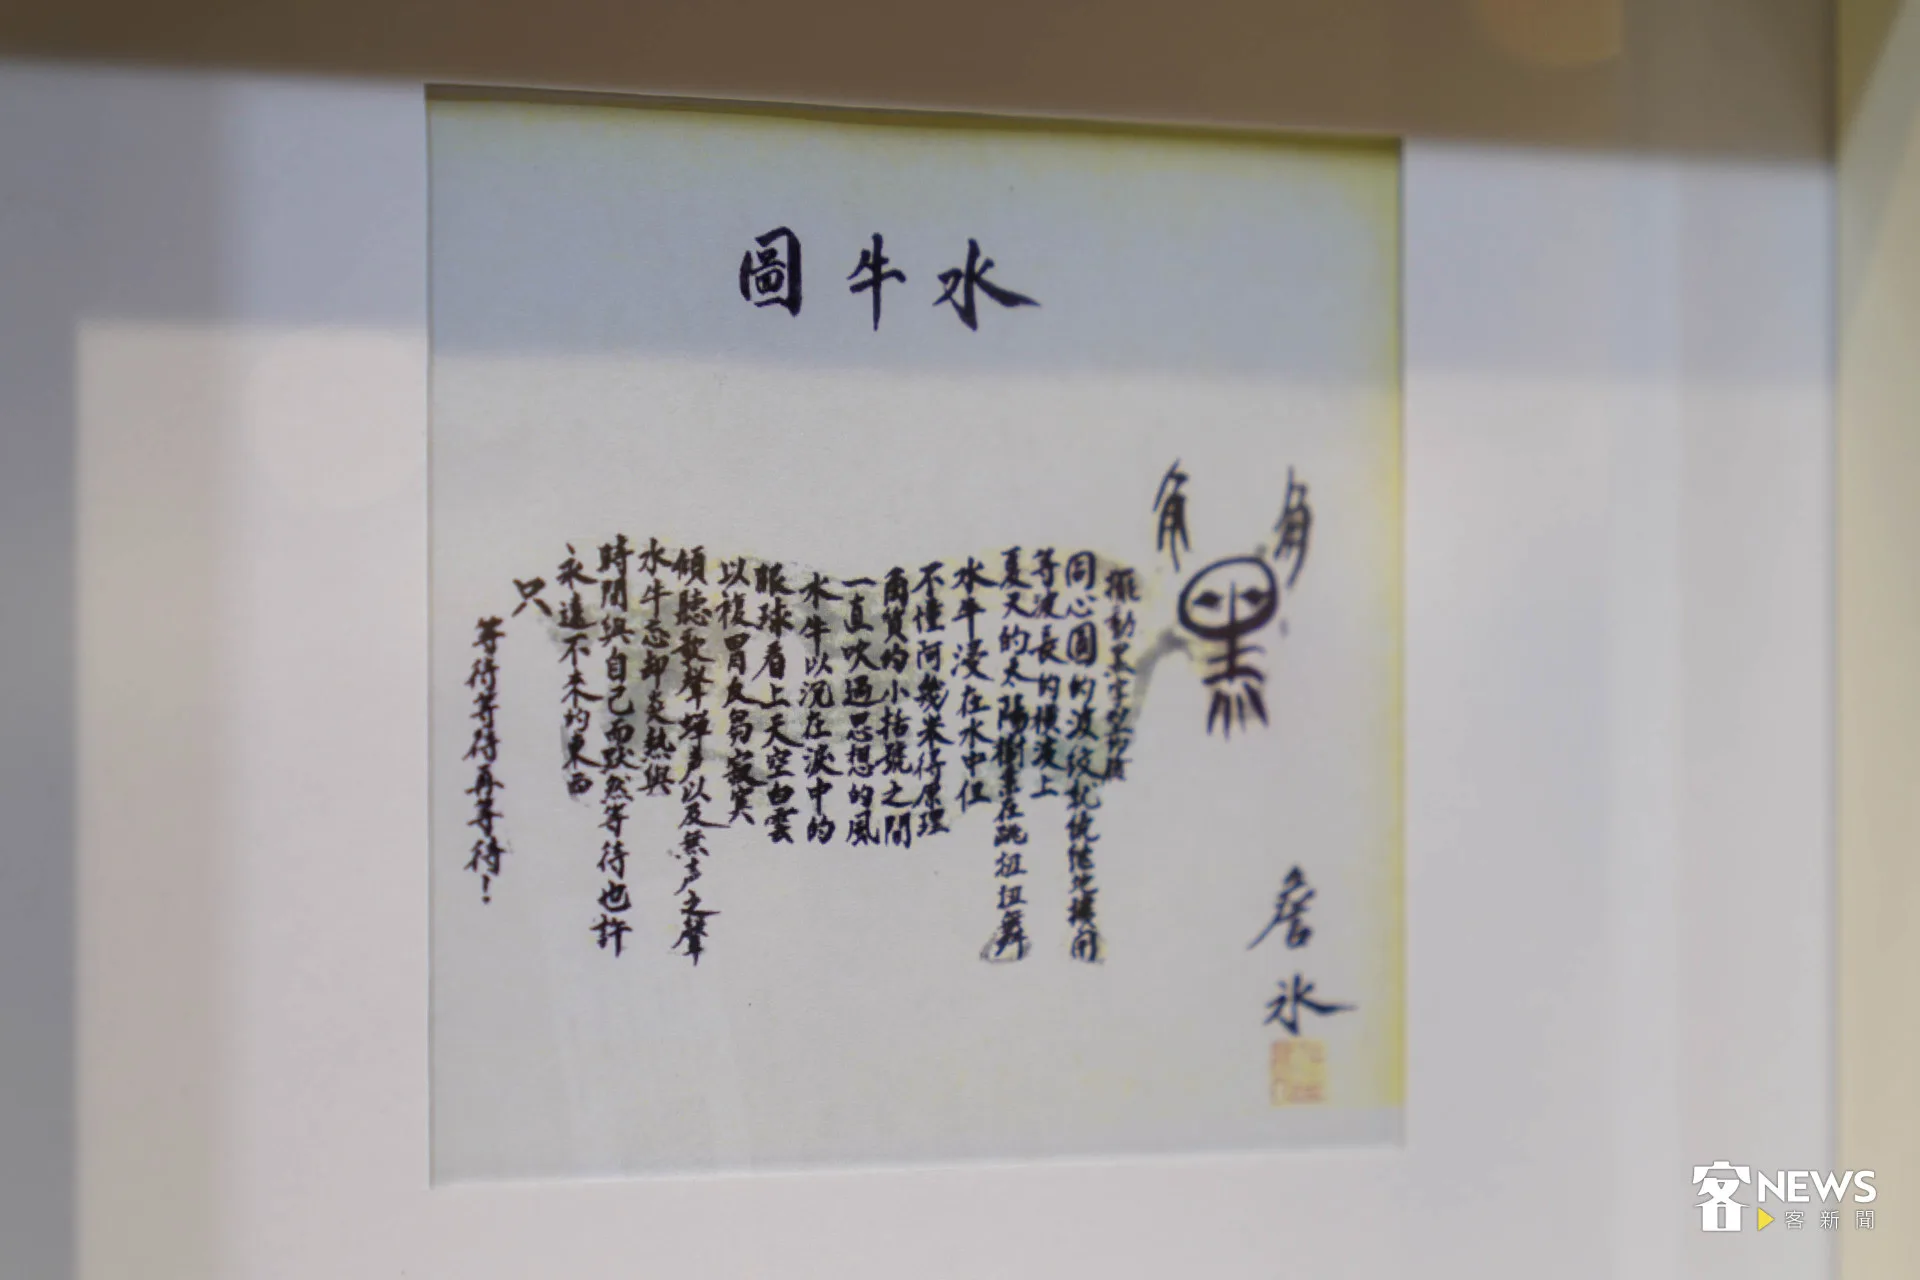 水牛圖
角 角
黑
擺動黑字型的臉
同心圓的波紋就 地擴開
等波長的橫波上
夏天的太陽樹葉在跳扭扭舞
水牛浸在水中但
不懂阿幾米得原理
角質的小括號之間
一直吹過思想的風
水牛以沉在淚中的
眼球看上天空白雲
以複胃反芻寂寞
傾聽歌聲蟬声以及無声之聲
水牛忘却炎熱與
時間與自己而默然等待也許
永遠不來的東西
只
等待等待再等待！
詹氷
客NEWS
客新聞